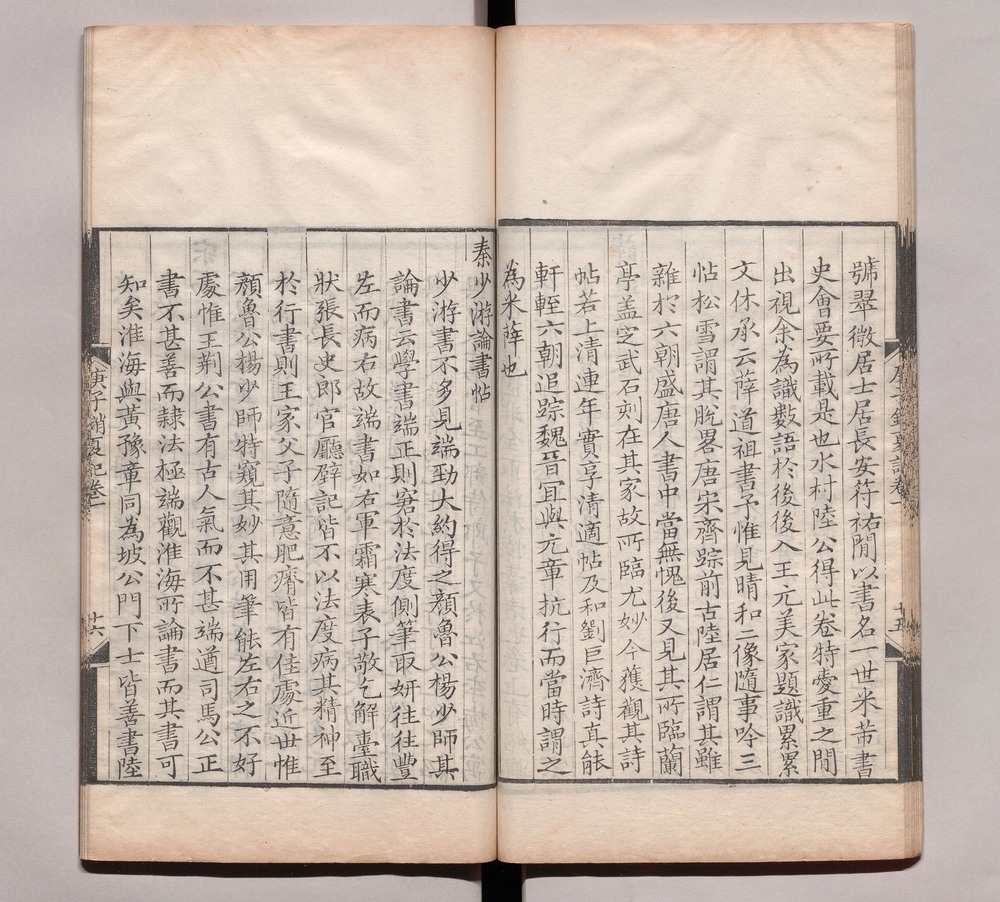 號翠微居士居長安符祐閒以書名一世米芾書
史會要所載是也水村陸公得此卷特愛重之間
出視余為識數語於後後入王元美家題識累累
文休承云薛道祖書予惟見晴和二像隨事吟三
帖松雪謂其脫畧唐宋齊踪前古陸居仁謂其雖
雜於六朝盛唐人書中當無愧後又見其所臨蘭
亭盖定武石刻在其家故所臨尤妙今獲觀其詩
帖若上清連年實享清適帖及和劉巨濟詩真能
軒輊六朝追踪魏晉冝與元章抗行而當時謂之
為米薛也
庚子銷夏記卷一
十五
秦少游論書帖
少游書不多見端勁大約得之顏魯公楊少師其
論書云學書端正則窘於法度側筆取妍往往豐
左而病右故端書如右軍霜寒表子敬乞解臺職
狀張長史郎官廳壁記皆不以法度病其精神至
於行書則王家父子隨意肥瘠皆有佳處近世惟
顏魯公楊少師特窺其妙其用筆能左右之不好
處惟王荆公書有古人氣而不甚端遒司馬公正
書不甚善而隸法極端觀淮海所論書而其書可
知矣淮海與黃豫章同為坡公門下士皆善書陸
庚子銷夏記卷一
十六